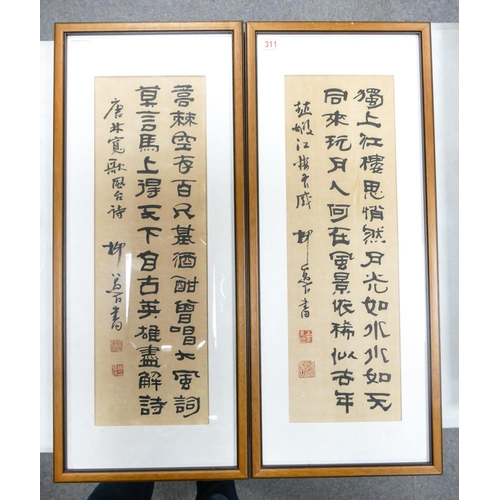 311
獨上江樓思悄然月光如水水如天
同來玩月人何在風景依稀似去年
趙嘏江樓有感 柳書
蒿棘空存百尺基酒酣曾唱大風詞
莫言馬上得天下自古英雄盡解詩
唐林寬歌風台詩 柳書